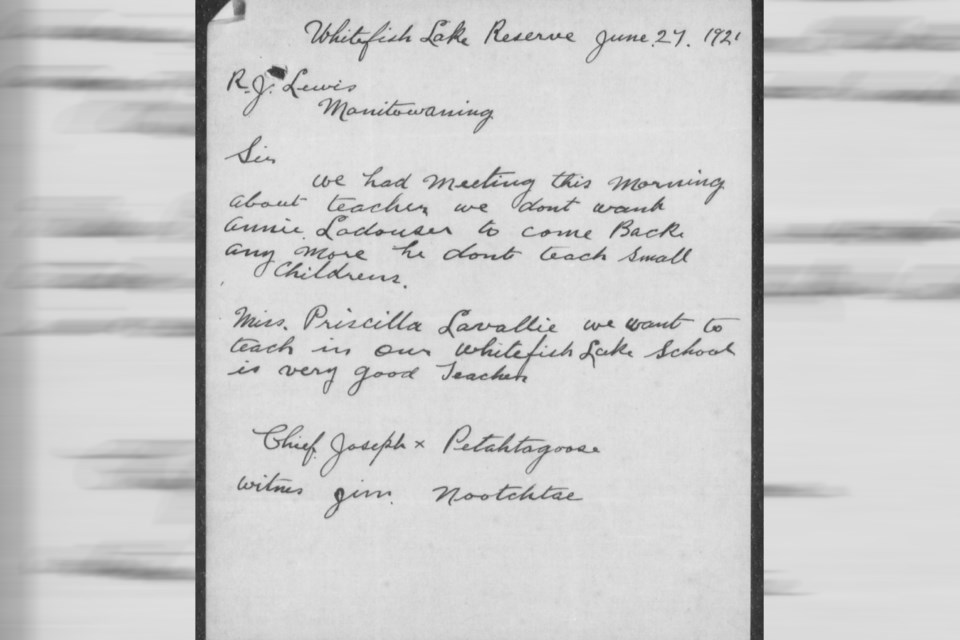 Whitefish Lake Reserve June. 27. 1921
R. J. Lewis
Manitowaning
Sir
we had meeting this morning
about teacher we dont want
Annie Ladouser to come Back
any more he dont teach small
Childrens.
Miss. Priscilla Lavallie we want to
teach in our Whitefish Lake School
is very good Teacher
Chief. Joseph x Petahtagoose
witnes jim. Nootchtae